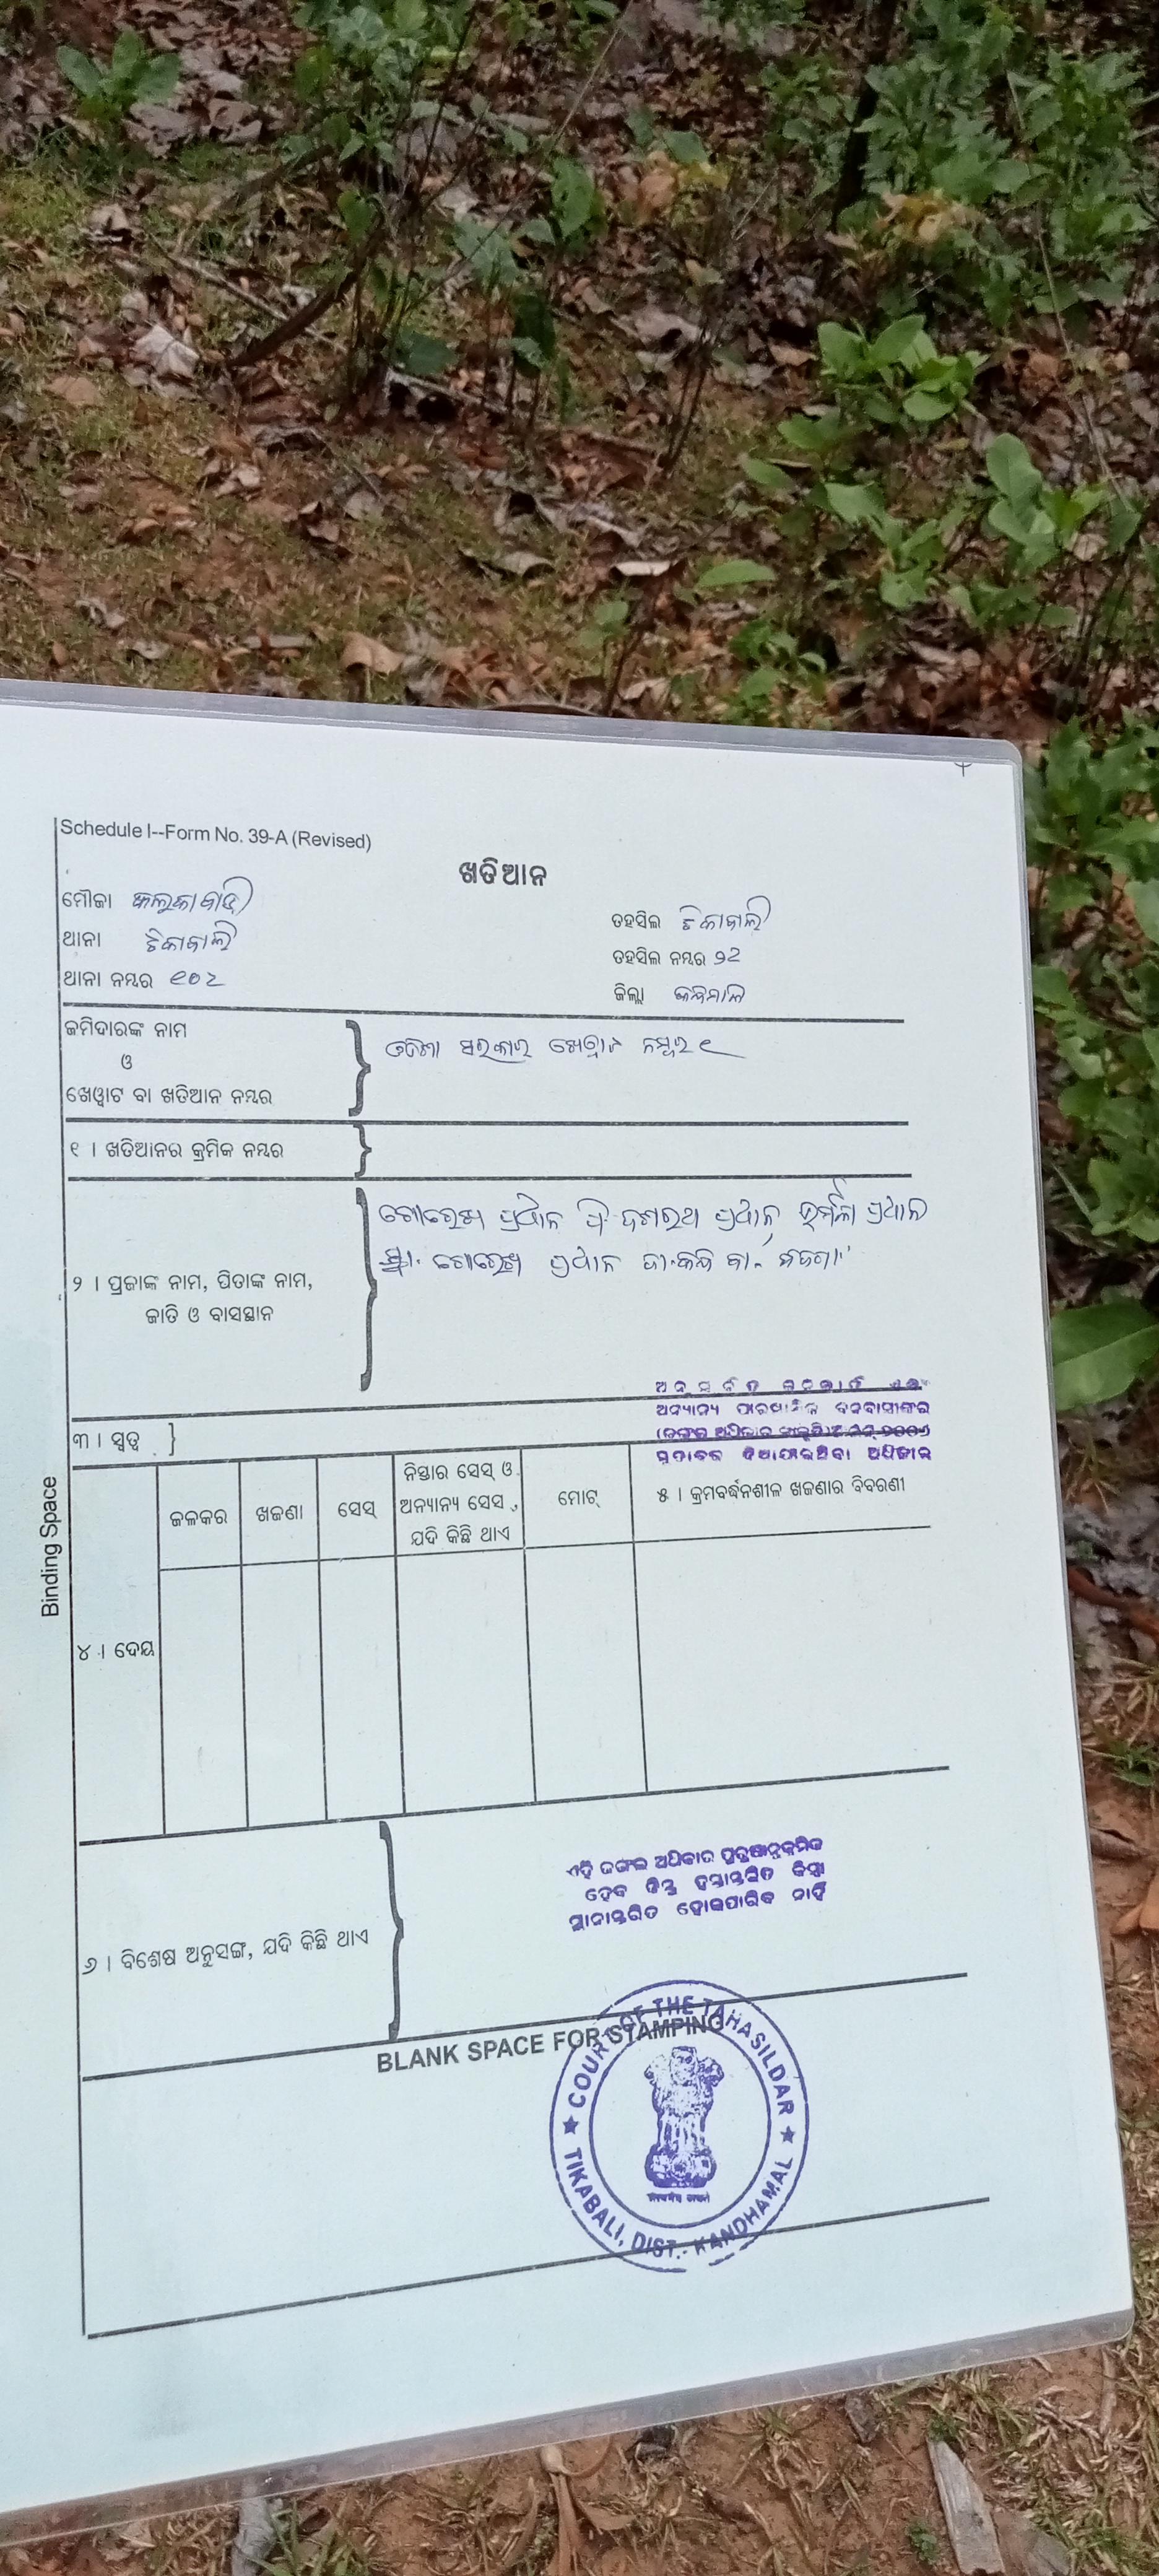 Schedule I--Form No. 39-A (Revised)
ଖତିଆନ
ମୌଜା
ତହସିଲ ଟିକାବାଲି
ଥାନା ଟିକାବାଲି
ତହସିଲ ନମ୍ବର ୨୨
ଥାନା ନମ୍ବର ୧୦୨
ଜିଲ୍ଲା କନ୍ଧମାଳ
ଜମିଦାରଙ୍କ ନାମ
ଓ
ଖେୱାଟ ବା ଖତିଆନ ନମ୍ବର
ଓଡିଶା ସରକାର ଖେୱାଟ ନମ୍ବର ୧
୧ । ଖତିଆନର କ୍ରମିକ ନମ୍ବର
୨ । ପ୍ରଜାଙ୍କ ନାମ, ପିତାଙ୍କ ନାମ,
ଜାତି ଓ ବାସସ୍ଥାନ
ପ୍ରଧାନ ପି- ଦଶରଥ ପ୍ରଧାନ, ପ୍ରଧାନ
ପ୍ରଧାନ ଜା-କନ୍ଧ ବା-
ଅନ୍ୟାନ୍ୟ ପାରମ୍ପାରିକ ବନବାସୀଙ୍କର
ମୁତାବକ ଦିଆଯାଇଥିବା ଅଧିକାର
୩ । ସ୍ୱତ୍ୱ
ଜଳକର
ଖଜଣା
ସେସ୍
ନିସ୍ତାର ସେସ୍ ଓ
ଅନ୍ୟାନ୍ୟ ସେସ୍,
ଯଦି କିଛି ଥାଏ
ମୋଟ୍
୫ । କ୍ରମବର୍ଦ୍ଧନଶୀଳ ଖଜଣାର ବିବରଣୀ
Binding Space
୪ । ଦେୟ
୬ । ବିଶେଷ ଅନୁସଙ୍ଗ, ଯଦି କିଛି ଥାଏ
ଏହି ଜଙ୍ଗଲ ଅଧିକାର ପୁରୁଷାନୁକ୍ରମିକ
ହେବ କିନ୍ତୁ ହସ୍ତାନ୍ତରିତ କିମ୍ବା
ସ୍ଥାନାନ୍ତରିତ ହୋଇପାରିବ ନାହିଁ
BLANK SPACE FOR STAMPING
COURT OF THE TAHASILDAR
TIKABALI, DIST.- KANDHAMAL